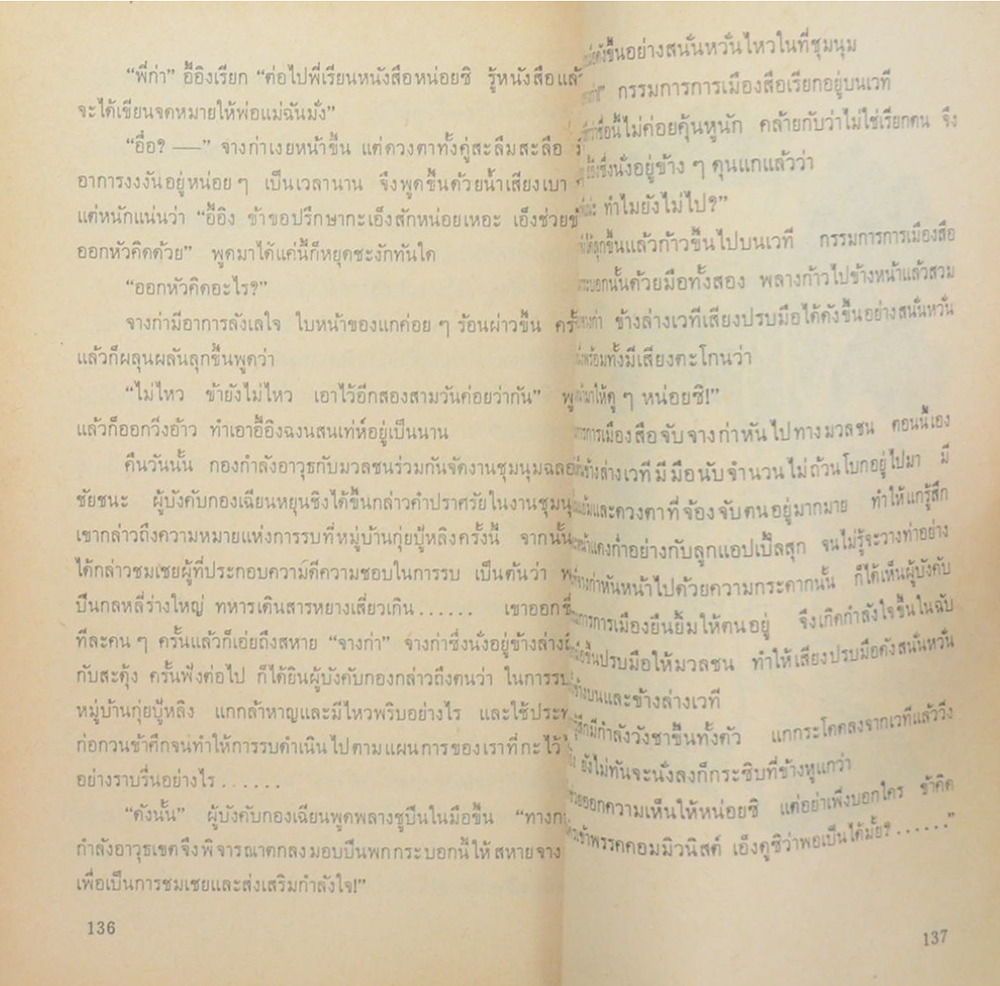 “พี่ก่า” อี้อิงเรียก “ต่อไปพี่เรียนหนังสือหน่อยซิ รู้หนังสือแล้ว
จะได้เขียนจดหมายให้พ่อแม่ฉันมั่ง”
“อื่อ? —–” จางก่าเงยหน้าขึ้น แต่ดวงตาทั้งคู่สะลึมสะลือ
อาการงงงันอยู่หน่อยๆ เป็นเวลานาน จึงพูดขึ้นด้วยน้ำเสียงเบา
แต่หนักแน่นว่า “อี้อิง ข้าขอปรึกษากะเอ็งสักหน่อยเหอะ เอ็งช่วยข้า
ออกหัวคิดด้วย” พูดมาได้แค่นี้ก็หยุดชะงักทันใด
“ออกหัวคิดอะไร?”
จางก่ามีอาการลังเลใจ ใบหน้าของแกค่อยๆ ร้อนผ่าวขึ้น ครั้น
แล้วก็ผลุนผลันลุกขึ้นพูดว่า
“ไม่ไหว ข้ายังไม่ไหว เอาไว้อีกสองสามวันค่อยว่ากัน”
แล้วก็ออกวิ่งอ้าว ทำเอาอี้อิงฉงนสนเท่ห์อยู่เป็นนาน
คืนวันนั้น กองกำลังอาวุธกับมวลชนร่วมกันจัดงานชุมนุมฉลอง
ชัยชนะ ผู้บังคับกองเฉียนหยุนชิงได้ขึ้นกล่าวคำปราศรัยในงานชุมนุม
เขากล่าวถึงความหมายแห่งการรบที่หมู่บ้านกุ่ยปู้หลิงครั้งนี้ จากนั้น
ได้กล่าวชมเชยผู้ที่ประกอบความดีความชอบในการรบ เป็นต้นว่า
ปืนกลหลี่ร่างใหญ่ ทหารเดินสารหยางเสี่ยวเกิน...... เขาออกชื่อ
ทีละคนๆ ครั้นแล้วก็เอ่ยถึงสหาย “จางก่า” จางก่าซึ่งนั่งอยู่ข้างล่าง
กับสะดุ้ง ครั้นฟังต่อไป ก็ได้ยินผู้บังคับกองกล่าวถึงตนว่า ในการรบ
หมู่บ้านกุ่ยปู้หลิง แกกล้าหาญและมีไหวพริบอย่างไร และใช้ประทัด
ก่อกวนข้าศึกจนทำให้การรบดำเนินไปตามแผนการของเราที่กะไว้
อย่างราบรื่นอย่างไร......
“ดังนั้น” ผู้บังคับกองเฉียนพูดพลางชูปืนในมือขึ้น “ทางกอง
กำลังอาวุธเขตจึงพิจารณาตกลงมอบปืนพกกระบอกนี้ให้สหายจาง
เพื่อเป็นการชมเชยและส่งเสริมกำลังใจ!”
136
ดังขึ้นอย่างสนั่นหวั่นไหวในที่ชุมนุม
กรรมการการเมืองสือเรียกอยู่บนเวที
ชื่อนี้ไม่ค่อยคุ้นหูนัก คล้ายกับว่าไม่ใช่เรียกตน จึง
ซึ่งนั่งอยู่ข้างๆ ดุนแกแล้วว่า
ทำไมยังไม่ไป?”
ลุกขึ้นแล้วก้าวขึ้นไปบนเวที กรรมการการเมืองสือ
กระบอกนั้นด้วยมือทั้งสอง พลางก้าวไปข้างหน้าแล้วสวม
ข้างล่างเวทีเสียงปรบมือได้ดังขึ้นอย่างสนั่นหวั่น
พร้อมทั้งมีเสียงตะโกนว่า
มาให้ดูๆ หน่อยซิ!”
การเมืองสือจับจางก่าหันไปทางมวลชน ตอนนี้เอง
ข้างล่างเวทีมีมือนับจำนวนไม่ถ้วนโบกอยู่ไปมา มี
และดวงตาที่จ้องจับตนอยู่มากมาย ทำให้แกรู้สึก
หน้าแดงก่ำอย่างกับลูกแอปเปิ้ลสุก จนไม่รู้จะวางท่าอย่าง
จางก่าหันหน้าไปด้วยความกระดากนั้น ก็ได้เห็นผู้บังคับ
การเมืองยืนยิ้มให้ตนอยู่ จึงเกิดกำลังใจขึ้นในฉับ
ขึ้นปรบมือให้มวลชน ทำให้เสียงปรบมือดังสนั่นหวั่น
ข้างบนและข้างล่างเวที
รู้สึกมีกำลังวังชาขึ้นทั้งตัว แกกระโดดลงจากเวทีแล้ววิ่ง
ยังไม่ทันจะนั่งลงก็กระซิบที่ข้างหูแกว่า
ช่วยออกความเห็นให้หน่อยซิ แต่อย่าเพิ่งบอกใคร ข้าคิด
เข้าพรรคคอมมิวนิสต์ เอ็งดูซิว่าพอเป็นได้มั้ย?......”
137